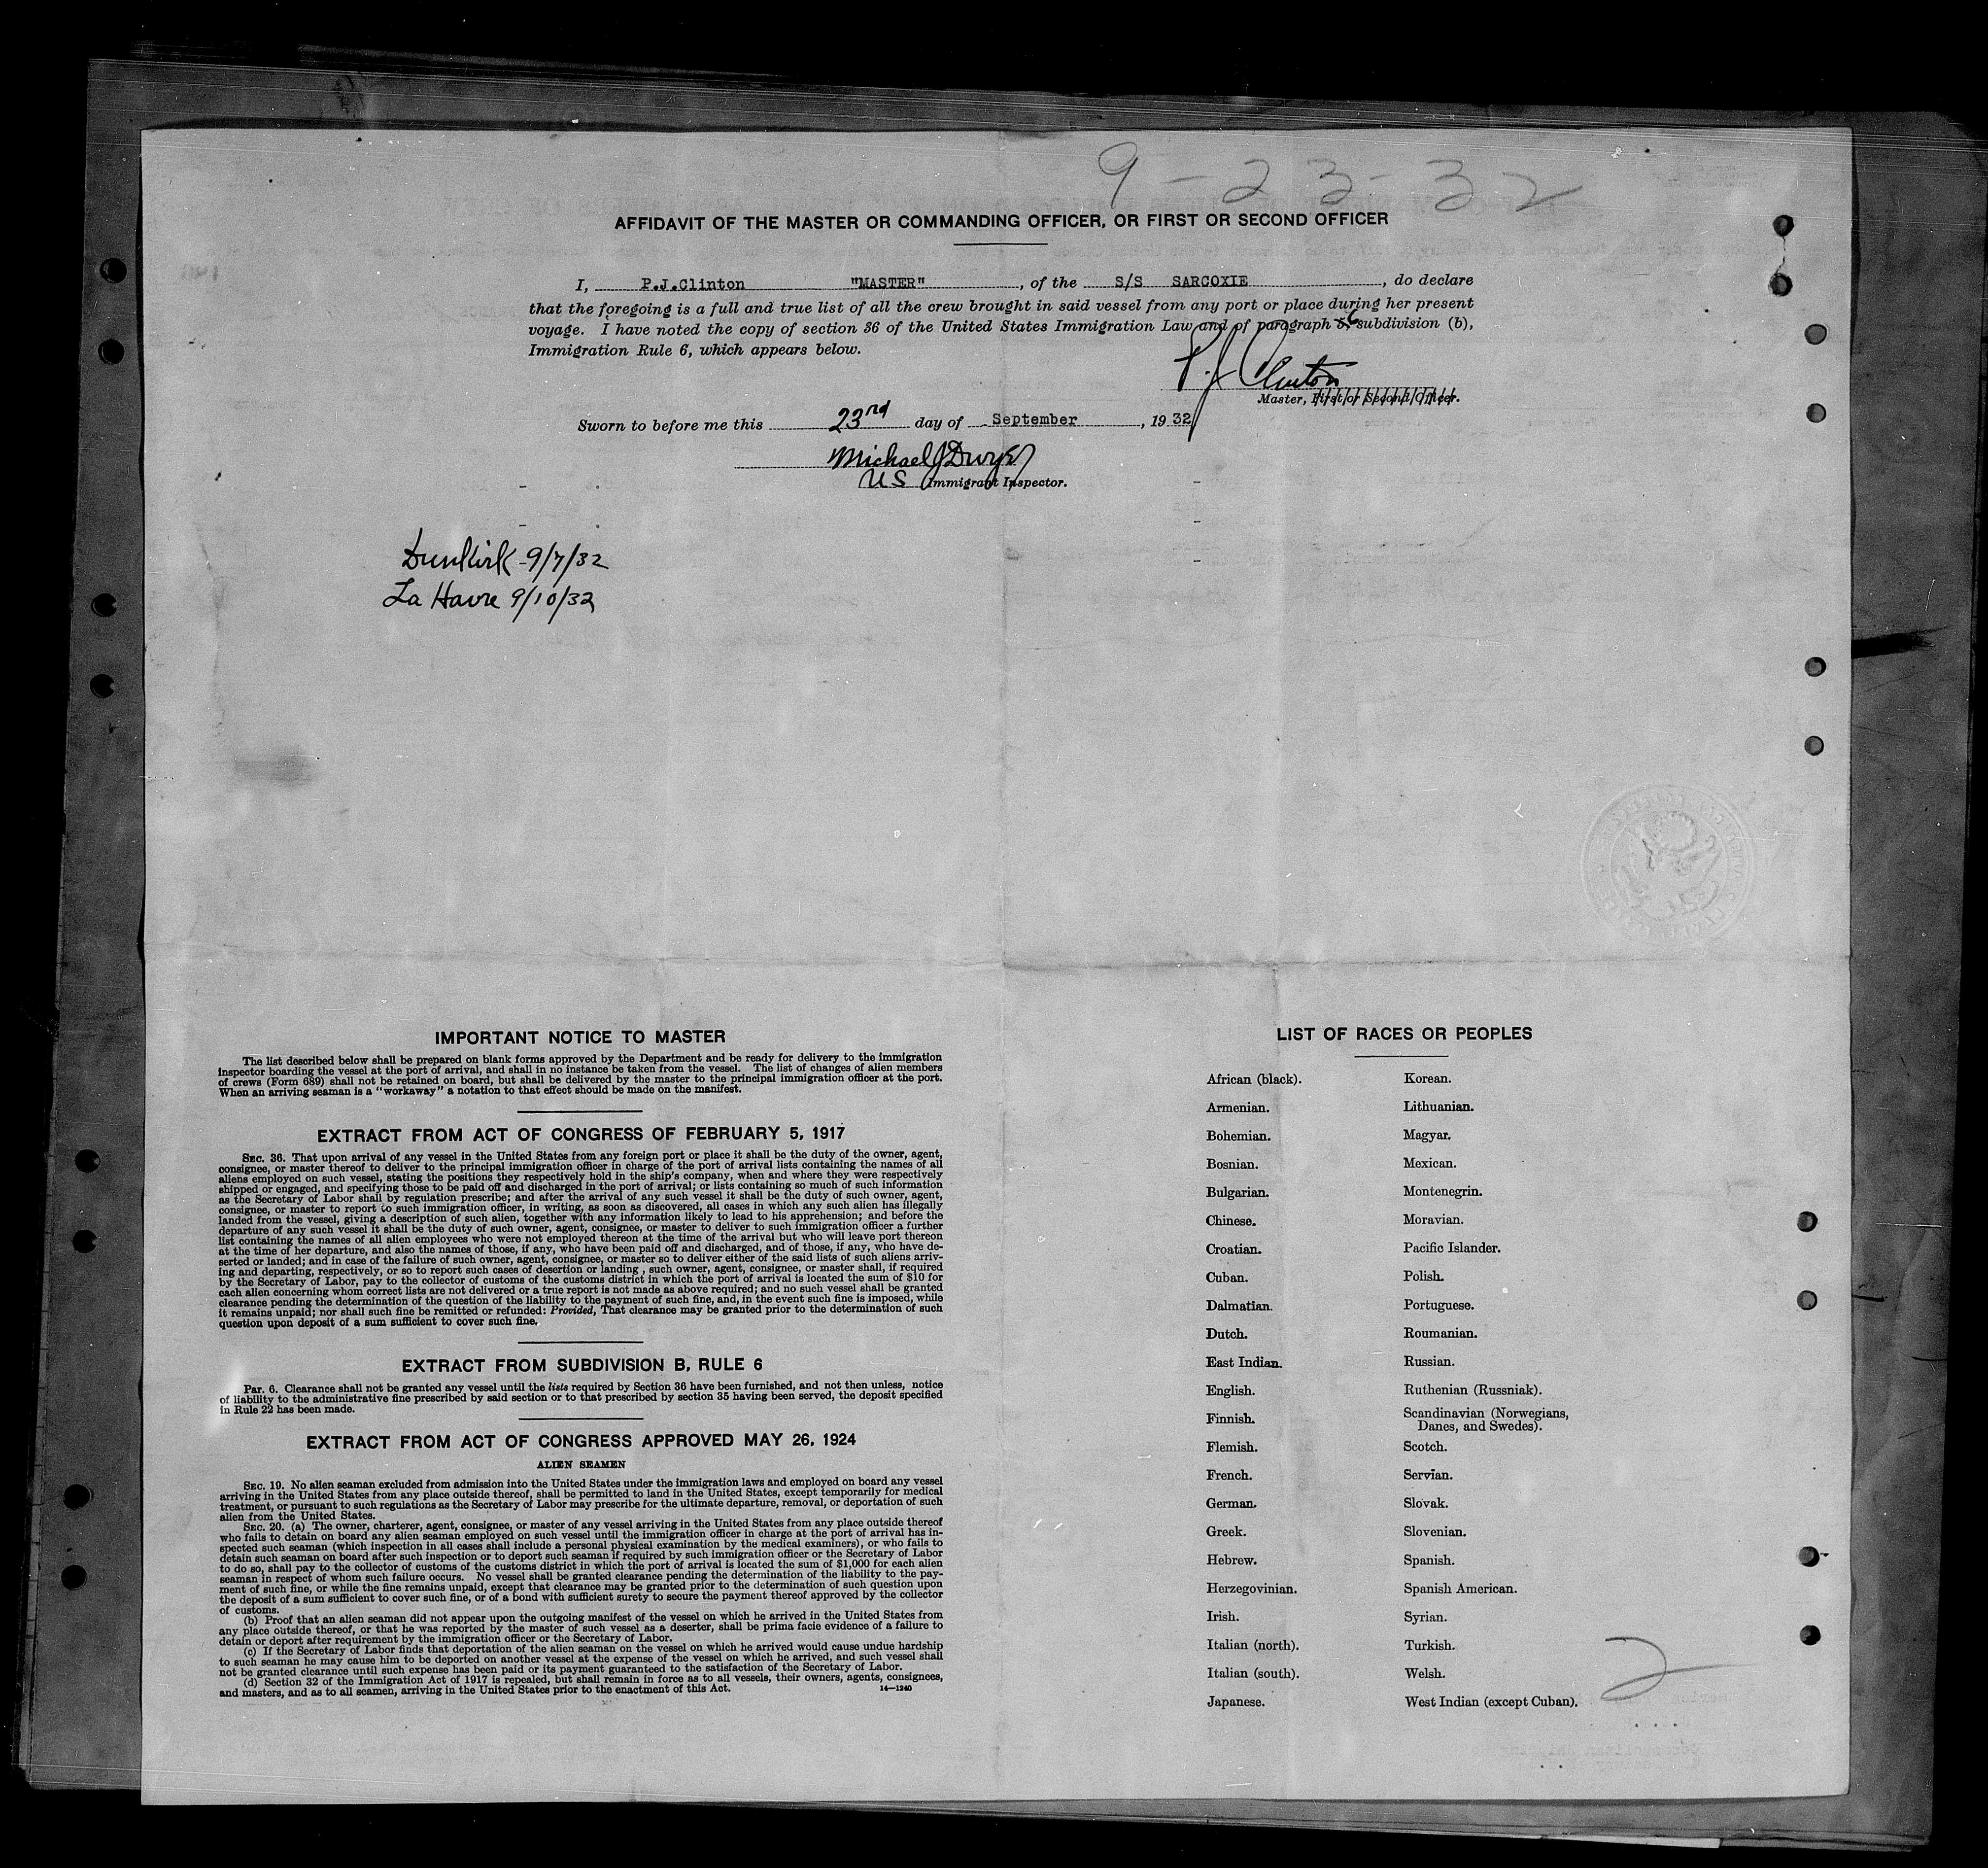 9-23-32
AFFIDAVIT OF THE MASTER OR COMMANDING OFFICER, OR FIRST OR SECOND OFFICER
I, P.J.Clinton "MASTER", of the S/S SARCOXIE, do declare
that the foregoing is a full and true list of all the crew brought in said vessel from any port or place during her present
voyage. I have noted the copy of section 36 of the United States Immigration Law and of paragraph 5, 6 subdivision (b),
Immigration Rule 6, which appears below.
P.J. Clinton
Master, First or Second Officer.
Sworn to before me this 23rd day of September, 1932
Michael J Dwyer
US Immigrant Inspector.
Dunkirk - 9/7/32
La Havre 9/10/32
IMPORTANT NOTICE TO MASTER
The list described below shall be prepared on blank forms approved by the Department and be ready for delivery to the immigration
inspector boarding the vessel at the port of arrival, and shall in no instance be taken from the vessel. The list of changes of alien members
of crews (Form 689) shall not be retained on board, but shall be delivered by the master to the principal immigration officer at the port.
When an arriving seaman is a "workaway" a notation to that effect should be made on the manifest.
EXTRACT FROM ACT OF CONGRESS OF FEBRUARY 5, 1917
SEC. 36. That upon arrival of any vessel in the United States from any foreign port or place it shall be the duty of the owner, agent,
consignee, or master thereof to deliver to the principal immigration officer in charge of the port of arrival lists containing the names of all
aliens employed on such vessel, stating the positions they respectively hold in the ship's company, when and where they were respectively
shipped or engaged, and specifying those to be paid off and discharged in the port of arrival; or lists containing so much of such information
as the Secretary of Labor shall by regulation prescribe; and after the arrival of any such vessel it shall be the duty of such owner, agent,
consignee, or master to report to such immigration officer, in writing, as soon as discovered, all cases in which any such alien has illegally
landed from the vessel, giving a description of such alien, together with any information likely to lead to his apprehension; and before the
departure of any such vessel it shall be the duty of such owner, agent, consignee, or master to deliver to such immigration officer a further
list containing the names of all alien employees who were not employed thereon at the time of the arrival but who will leave port thereon
at the time of her departure, and also the names of those, if any, who have been paid off and discharged, and of those, if any, who have de-
serted or landed; and in case of the failure of such owner, agent, consignee, or master so to deliver either of the said lists of such aliens arriv-
ing and departing, respectively, or so to report such cases of desertion or landing, such owner, agent, consignee, or master shall, if required
by the Secretary of Labor, pay to the collector of customs of the customs district in which the port of arrival is located the sum of $10 for
each alien concerning whom correct lists are not delivered or a true report is not made as above required; and no such vessel shall be granted
clearance pending the determination of the question of the liability to the payment of such fine, and, in the event such fine is imposed, while
it remains unpaid; nor shall such fine be remitted or refunded: Provided, That clearance may be granted prior to the determination of such
question upon deposit of a sum sufficient to cover such fine.
EXTRACT FROM SUBDIVISION B, RULE 6
Par. 6. Clearance shall not be granted any vessel until the lists required by Section 36 have been furnished, and not then unless, notice
of liability to the administrative fine prescribed by said section or to that prescribed by section 35 having been served, the deposit specified
in Rule 22 has been made.
EXTRACT FROM ACT OF CONGRESS APPROVED MAY 26, 1924
ALIEN SEAMEN
SEC. 19. No alien seaman excluded from admission into the United States under the immigration laws and employed on board any vessel
arriving in the United States from any place outside thereof, shall be permitted to land in the United States, except temporarily for medical
treatment, or pursuant to such regulations as the Secretary of Labor may prescribe for the ultimate departure, removal, or deportation of such
alien from the United States.
SEC. 20. (a) The owner, charterer, agent, consignee, or master of any vessel arriving in the United States from any place outside thereof
who fails to detain on board any alien seaman employed on such vessel until the immigration officer in charge at the port of arrival has in-
spected such seaman (which inspection in all cases shall include a personal physical examination by the medical examiners), or who fails to
detain such seaman on board after such inspection or to deport such seaman if required by such immigration officer or the Secretary of Labor
to do so, shall pay to the collector of customs of the customs district in which the port of arrival is located the sum of $1,000 for each alien
seaman in respect of whom such failure occurs. No vessel shall be granted clearance pending the determination of the liability to the pay-
ment of such fine, or while the fine remains unpaid, except that clearance may be granted prior to the determination of such question upon
the deposit of a sum sufficient to cover such fine, or of a bond with sufficient surety to secure the payment thereof approved by the collector
of customs.
(b) Proof that an alien seaman did not appear upon the outgoing manifest of the vessel on which he arrived in the United States from
any place outside thereof, or that he was reported by the master of such vessel as a deserter, shall be prima facie evidence of a failure to
detain or deport after requirement by the immigration officer or the Secretary of Labor.
(c) If the Secretary of Labor finds that deportation of the alien seaman on the vessel on which he arrived would cause undue hardship
to such seaman he may cause him to be deported on another vessel at the expense of the vessel on which he arrived, and such vessel shall
not be granted clearance until such expense has been paid or its payment guaranteed to the satisfaction of the Secretary of Labor.
(d) Section 32 of the Immigration Act of 1917 is repealed, but shall remain in force as to all vessels, their owners, agents, consignees,
and masters, and as to all seamen, arriving in the United States prior to the enactment of this Act. 14—1240
LIST OF RACES OR PEOPLES
African (black).
Armenian.
Bohemian.
Bosnian.
Bulgarian.
Chinese.
Croatian.
Cuban.
Dalmatian.
Dutch.
East Indian.
English.
Finnish.
Flemish.
French.
German.
Greek.
Hebrew.
Herzegovinian.
Irish.
Italian (north).
Italian (south).
Japanese.
Korean.
Lithuanian.
Magyar.
Mexican.
Montenegrin.
Moravian.
Pacific Islander.
Polish.
Portuguese.
Roumanian.
Russian.
Ruthenian (Russniak).
Scandinavian (Norwegians,
Danes, and Swedes).
Scotch.
Servian.
Slovak.
Slovenian.
Spanish.
Spanish American.
Syrian.
Turkish.
Welsh.
West Indian (except Cuban).
2